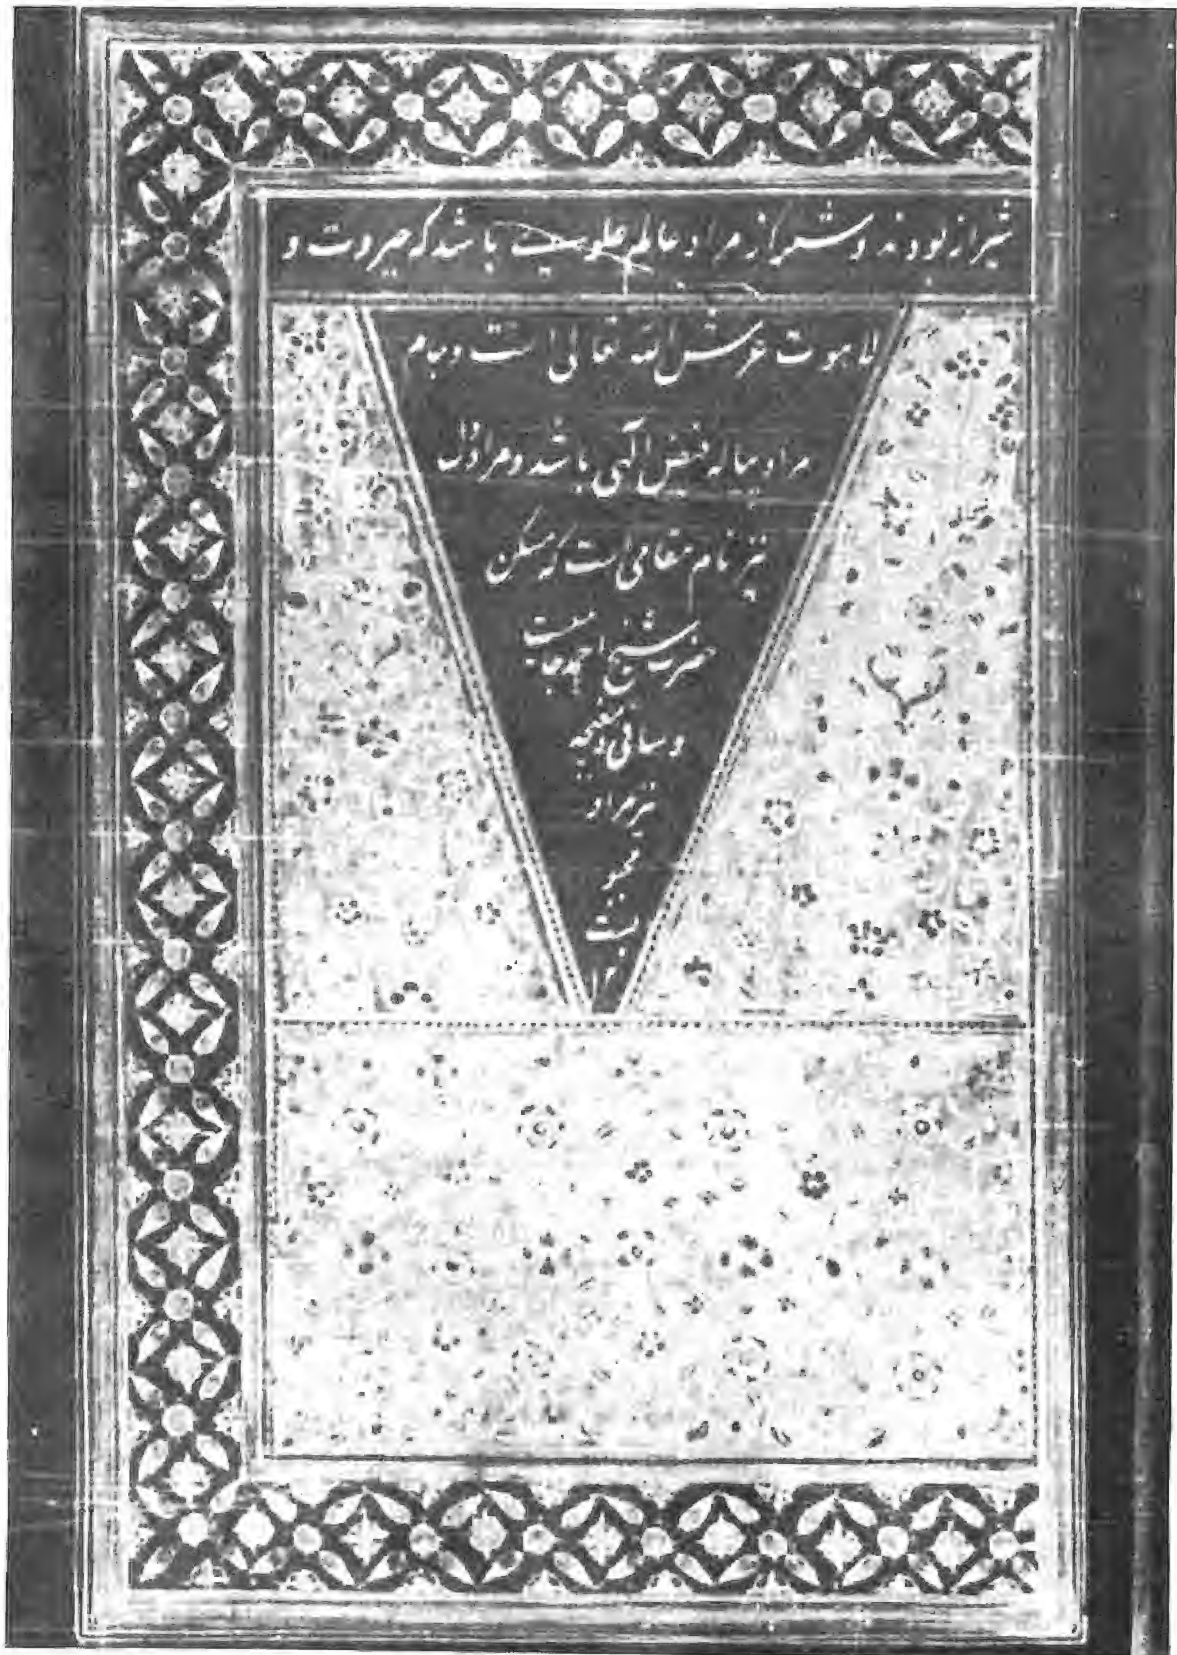 شیراز بودند و مراد عالم علویت باشد که جبروت و
لاهوت عرش الله تعالی است و جام
مراد پیاله فیض الهی باشد و مراد از
نیز نام مقامی است که مسکن
حضرت شیخ احمد جامیست
و ساقی و مغبچه
نیز مراد
محبو
بست
۱۲